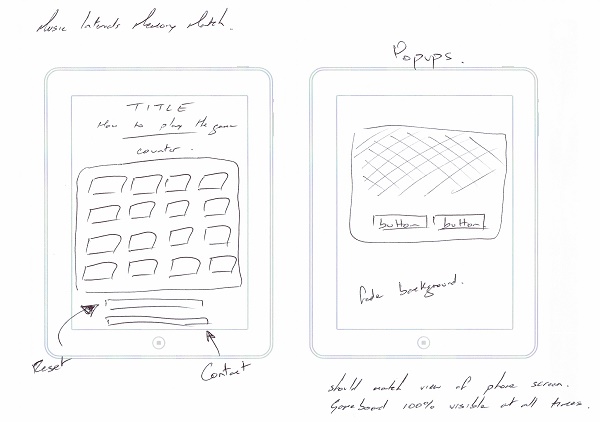 Music Intervals Memory Match.
TITLE
How to play the game
counter.
Reset
Contact
Popups.
button button
fade background.
should match view of phone screen.
Gameboard 100% visible at all times.